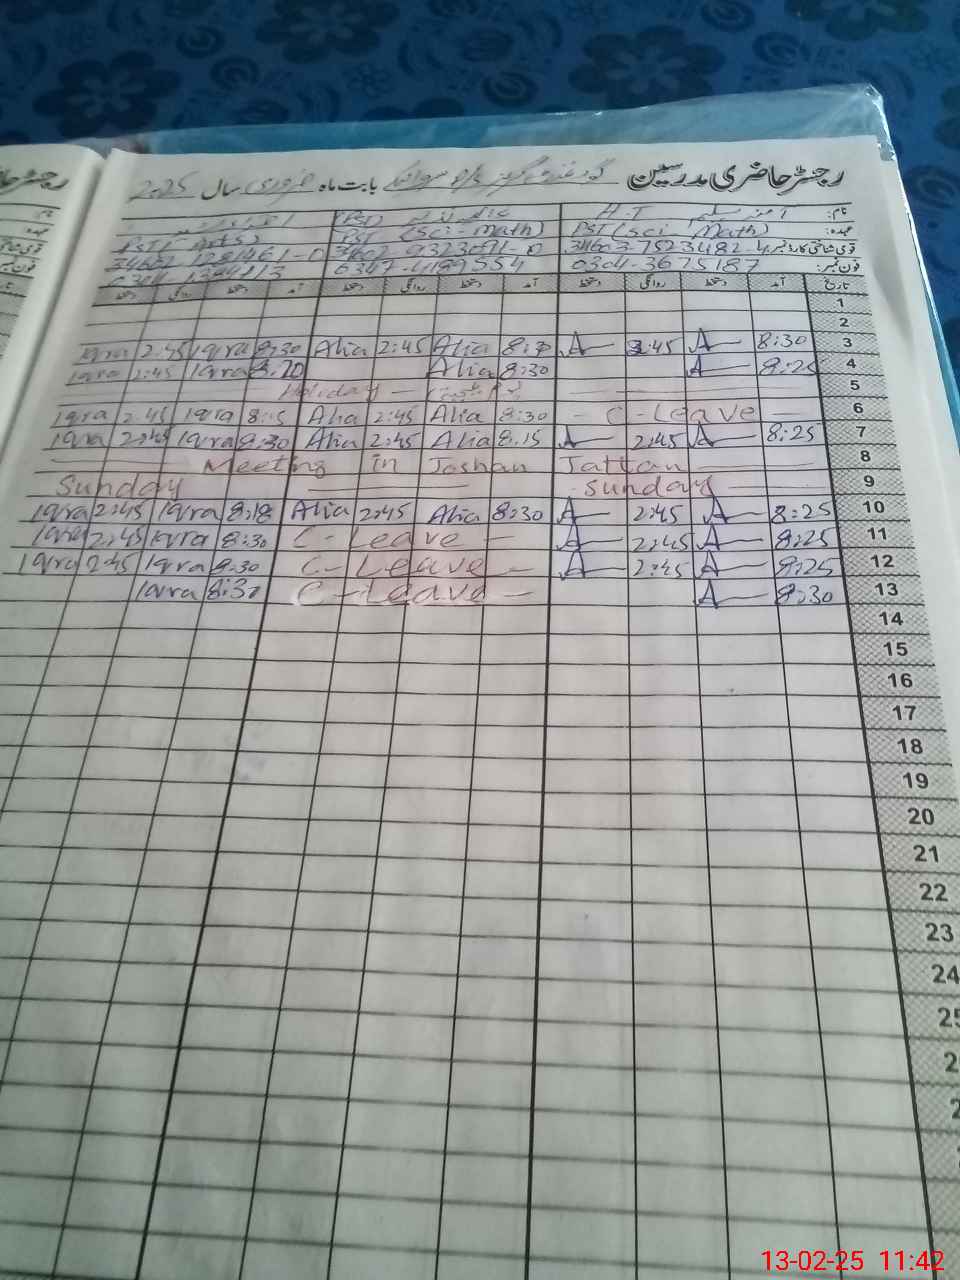 رجسٹر حاضری مدرسین بابت ماہ فروری سال 2025
نام: آمنہ سلیم H.T (PST)
عہدہ: PST (Sci-Math) PST (Sci-Math) PST (Arts)
قومی شناختی کارڈ نمبر: 34603-7523482-4
فون نمبر: 0304-3675187
تاریخ آمد دستخط روانگی دستخط آمد دستخط روانگی دستخط آمد دستخط روانگی دستخط
1
2
3 8:30 A 3:45 A 8:30 Alia 2:45 Alia 8:30 Iqra 2:45 Iqra
4 8:25 A 8:30 Alia 8:20 Iqra 2:45 Iqra
5 Holiday
6 C-Leave 8:30 Alia 2:45 Alia 8:15 Iqra 2:45 Iqra
7 8:25 A 2:45 A 8:15 Alia 2:45 Alia 8:30 Iqra 2:45 Iqra
8 Meeting in Joshan Jattan
9 Sunday Sunday
10 8:25 A 2:45 A 8:30 Alia 2:45 Alia 8:18 Iqra 2:45 Iqra
11 8:25 A 2:45 A C-Leave 8:30 Iqra 2:45 Iqra
12 8:25 A 2:45 A C-Leave 8:30 Iqra 2:45 Iqra
13 8:30 A C-Leave 8:30 Iqra
14
15
16
17
18
19
20
21
22
23
24
25
13-02-25 11:42